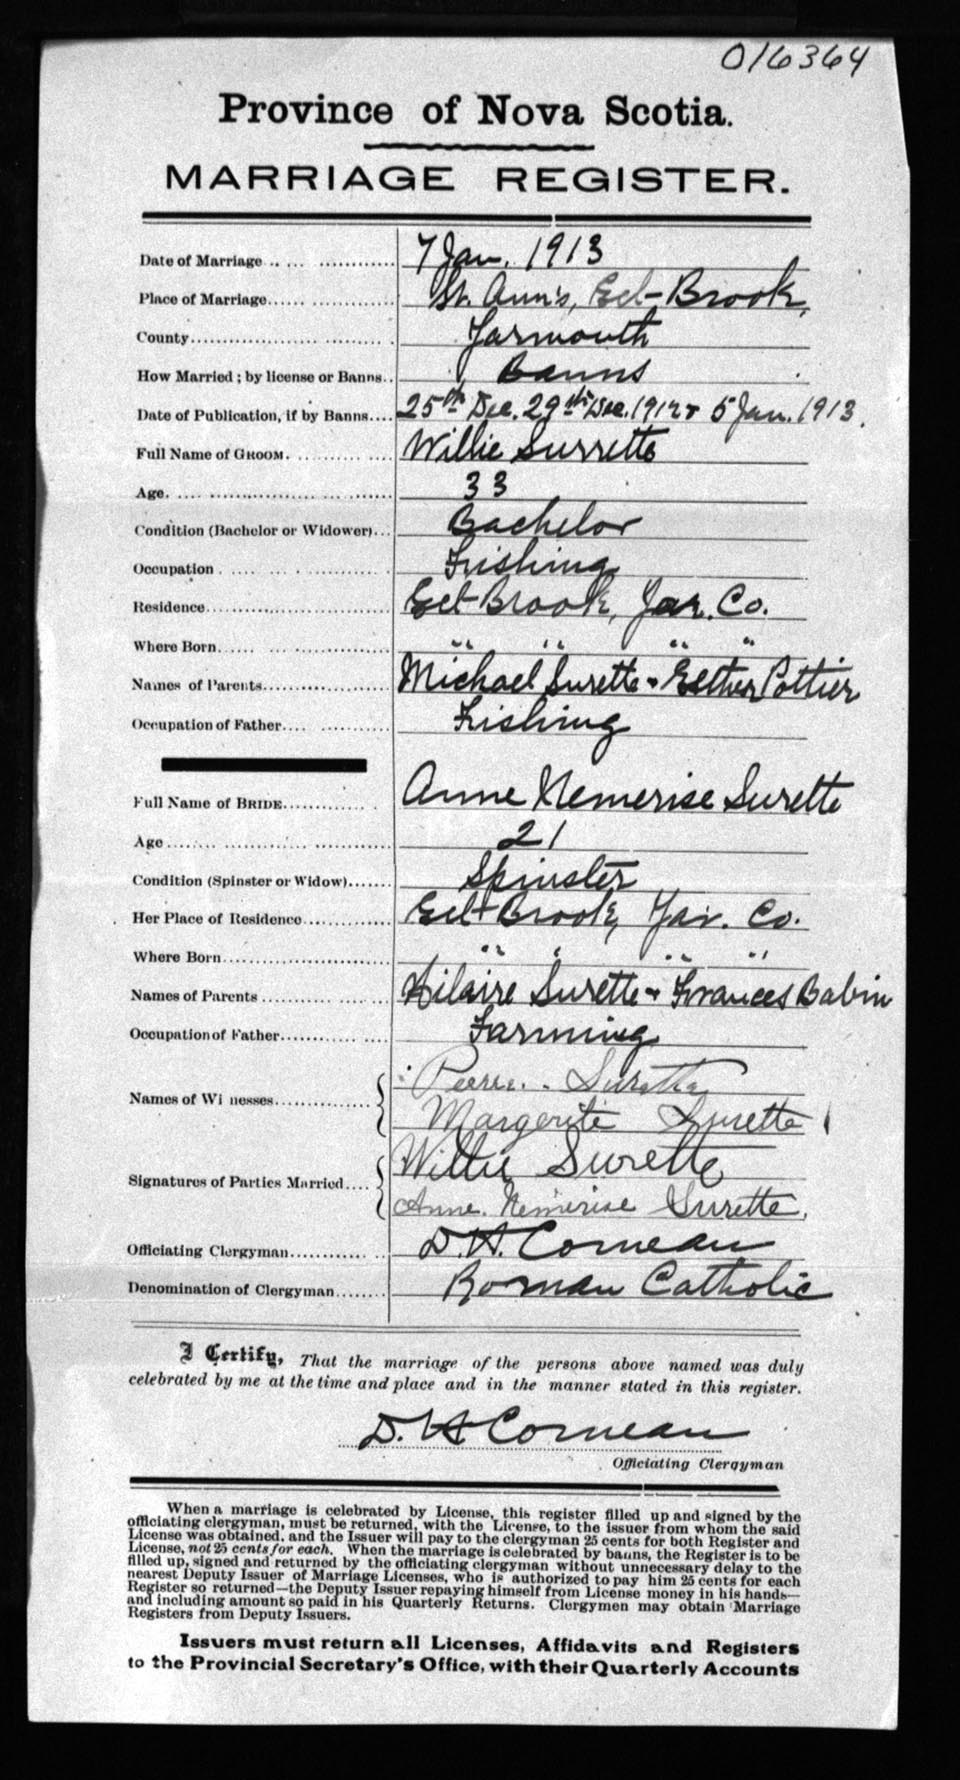 016364
Province of Nova Scotia.
MARRIAGE REGISTER.
Date of Marriage 7 Jan. 1913
Place of Marriage St. Ann's, Eel-Brook,
County Yarmouth
How Married; by license or Banns.. Banns
Date of Publication, if by Banns.... 25th Dec. 29th Dec. 1912 & 5 Jan. 1913.
Full Name of GROOM. Willie Surrette
Age. 33
Condition (Bachelor or Widower)... Bachelor
Occupation Fishing
Residence Eel-Brook, Yar. Co.
Where Born " " " "
Names of Parents Michael Surette & Esther Pottier
Occupation of Father Fishing
Full Name of BRIDE Anne Nemerise Surette
Age 21
Condition (Spinster or Widow) Spinster
Her Place of Residence Eel-Brook, Yar. Co.
Where Born " " " "
Names of Parents Hilaire Surette & Frances Babin
Occupation of Father Farming
Names of Wi nesses Pierre Surette
Margerite Surette
Signatures of Parties Married Willie Surette
Anne. Nemerise Surette.
Officiating Clergyman D. H. Comeau
Denomination of Clergyman Roman Catholic
I Certify, That the marriage of the persons above named was duly
celebrated by me at the time and place and in the manner stated in this register.
D. H Comeau
Officiating Clergyman
When a marriage is celebrated by License, this register filled up and signed by the
officiating clergyman, must be returned, with the License, to the issuer from whom the said
License was obtained, and the Issuer will pay to the clergyman 25 cents for both Register and
License, not 25 cents for each. When the marriage is celebrated by banns, the Register is to be
filled up, signed and returned by the officiating clergyman without unnecessary delay to the
nearest Deputy Issuer of Marriage Licenses, who is authorized to pay him 25 cents for each
Register so returned—the Deputy Issuer repaying himself from License money in his hands—
and including amount so paid in his Quarterly Returns. Clergymen may obtain Marriage
Registers from Deputy Issuers.
Issuers must return all Licenses, Affidavits and Registers
to the Provincial Secretary's Office, with their Quarterly Accounts